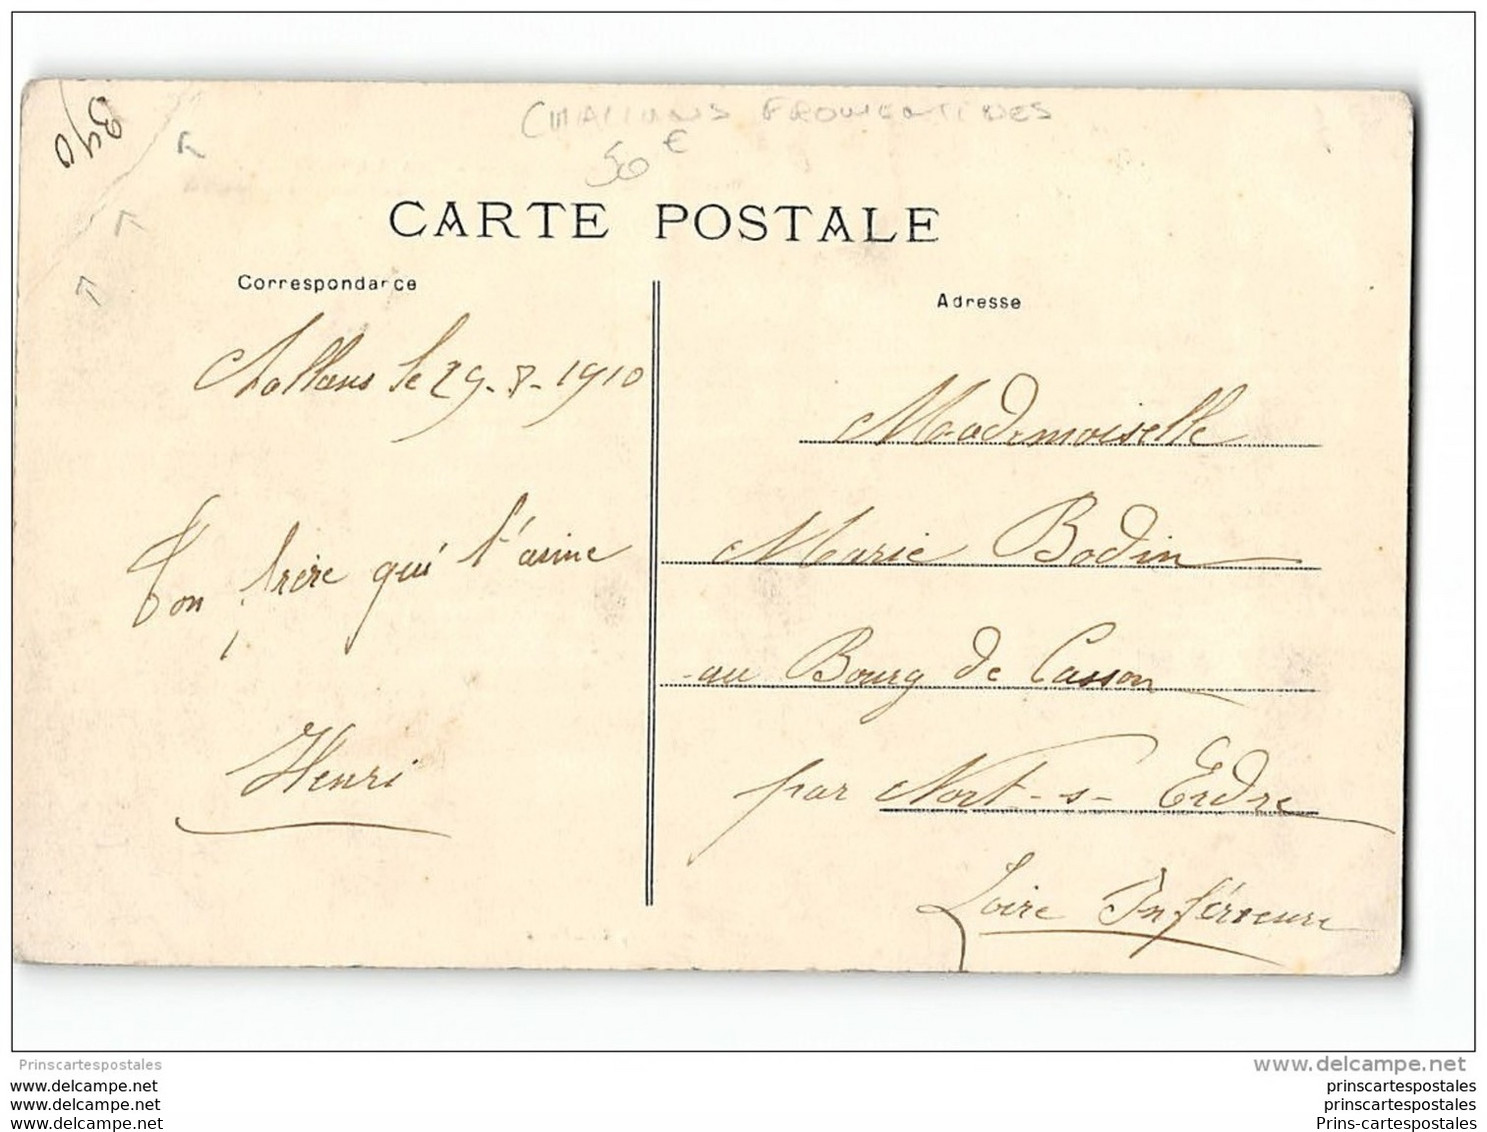 390
CHALLANS FROMENTINES
50 €
CARTE POSTALE
Correspondance
Adresse
Challans le 29-8-1910
Mademoiselle
Ton frère qui t'aime
Marie Bodin
au Bourg de Casson
Henri
par Nort-s-Erdre
Loire Inférieure
Prinscartespostales
www.delcampe.net
www.delcampe.net
www.delcampe.net
www.delcampe.net
prinscartespostales
prinscartespostales
Prins-cartespostales